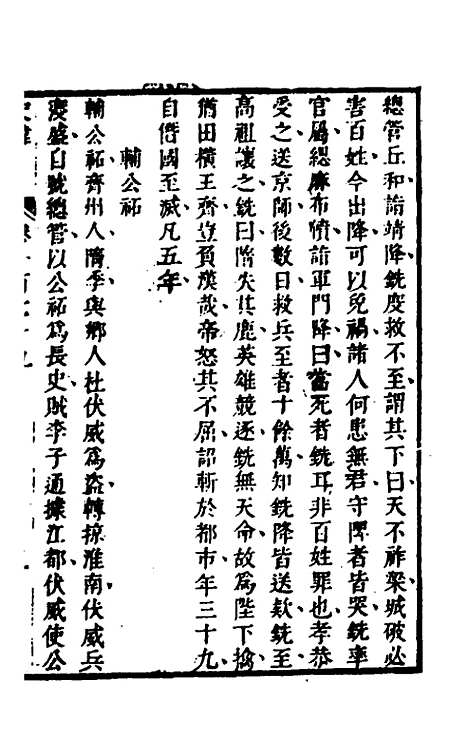 總管丘和詣靖降銑度救不至謂其下曰天不祚梁城破必
害百姓今出降可以免禍諸人何患無君守陴者皆哭銑率
官屬緦麻布幘詣軍門降曰當死者銑耳非百姓罪也孝恭
受之送京師後數日救兵至者十餘萬知銑降皆送欵銑至
高祖讓之銑曰隋失其鹿英雄競逐銑無天命故爲陛下擒
猶田橫王齊豈負漢哉帝怒其不屈詔斬於都市年三十九
自僭國至滅凡五年
輔公祏
輔公祏齊州人隋季與鄉人杜伏威爲盜轉掠淮南伏威兵
寖盛自號總管以公祏爲長史賊李子通據江都伏威使公